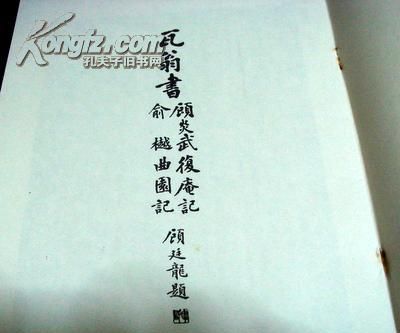 Kongfz.com
孔夫子旧书网
瓦翁書
顧炎武復庵記
俞樾曲園記
顧廷龍題